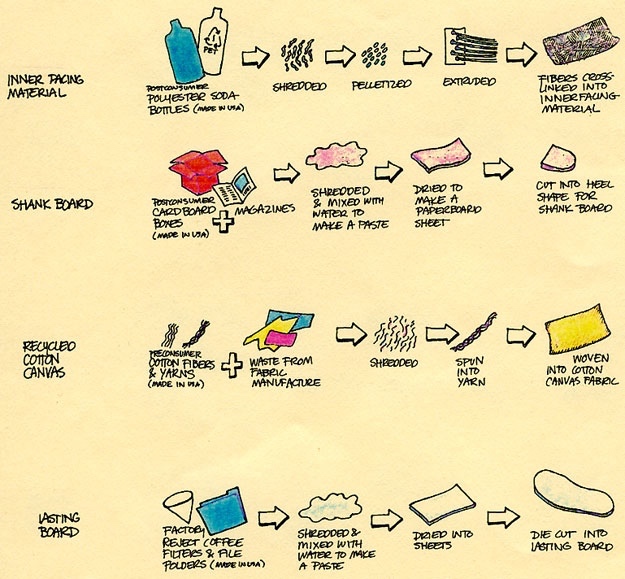 PET
INNER FACING
MATERIAL
POSTCONSUMER
POLYESTER SODA
BOTTLES (MADE IN USA)
SHREDDED
PELLETIZED
EXTRUDED
FIBERS CROSS-
LINKED INTO
INNERFACING
MATERIAL
SHANK BOARD
POSTCONSUMER
CARDBOARD
BOXES
(MADE IN USA)
+
MAGAZINES
SHREDDED
& MIXED WITH
WATER TO
MAKE A PASTE
DRIED TO
MAKE A
PAPERBOARD
SHEET
CUT INTO HEEL
SHAPE FOR
SHANK BOARD
RECYCLED
COTTON
CANVAS
PRECONSUMER
COTTON FIBERS
& YARNS
(MADE IN USA)
+
WASTE FROM
FABRIC
MANUFACTURE
SHREDDED
SPUN
INTO
YARN
WOVEN
INTO COTTON
CANVAS FABRIC
LASTING
BOARD
FACTORY
REJECT COFFEE
FILTERS & FILE
FOLDERS (MADE IN USA)
SHREDDED &
MIXED WITH
WATER TO MAKE
A PASTE
DRIED INTO
SHEETS
DIE CUT INTO
LASTING BOARD